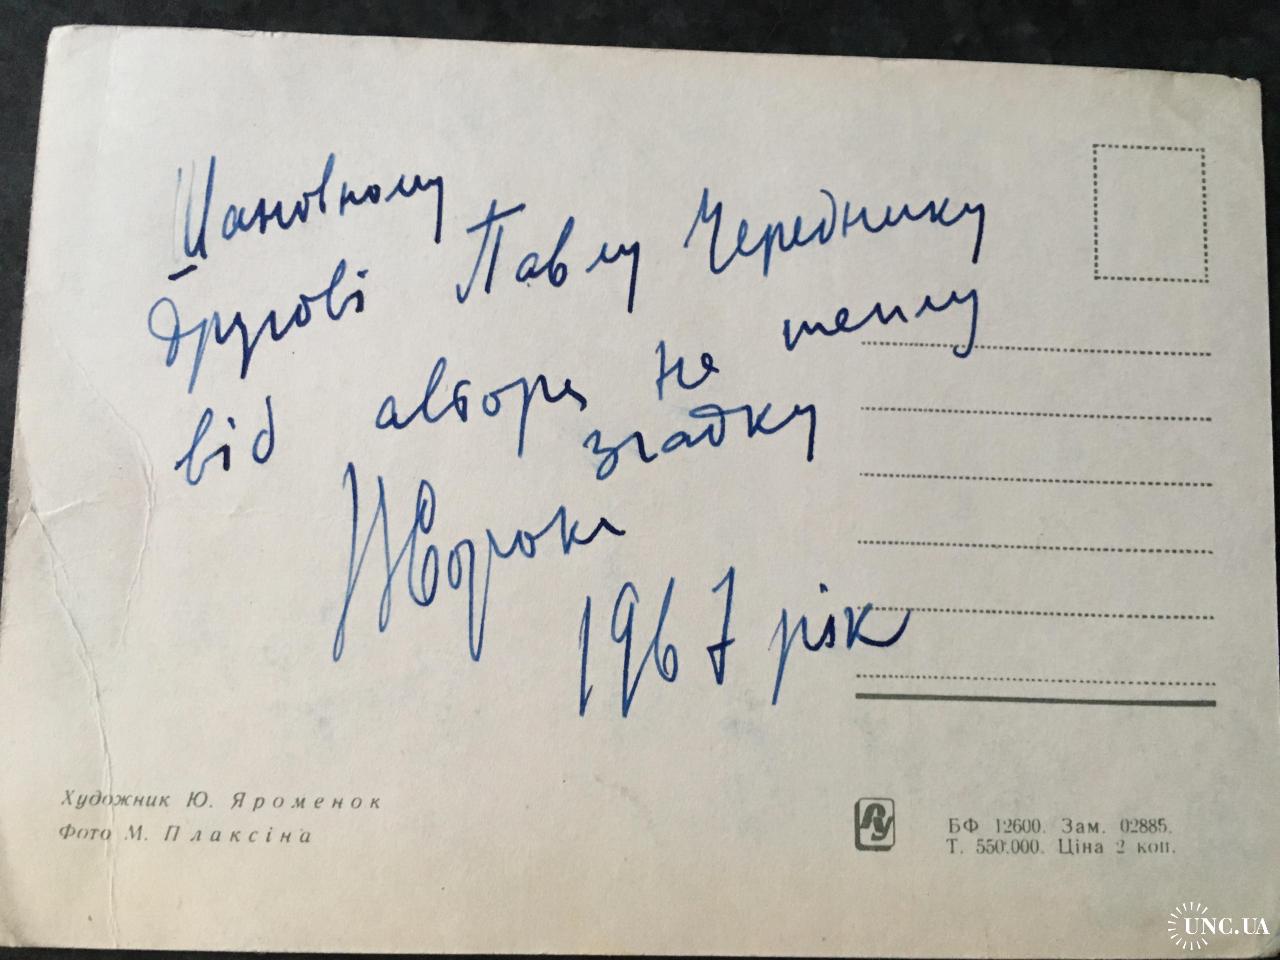 Шановному
другові Павлу Череднику
від автора на теплу
згадку
Сорока
1967 рік
Художник Ю. Яроменок
Фото М. Плаксіна
БФ 12600. Зам. 02885.
Т. 550.000. Ціна 2 коп.
UNC.UA